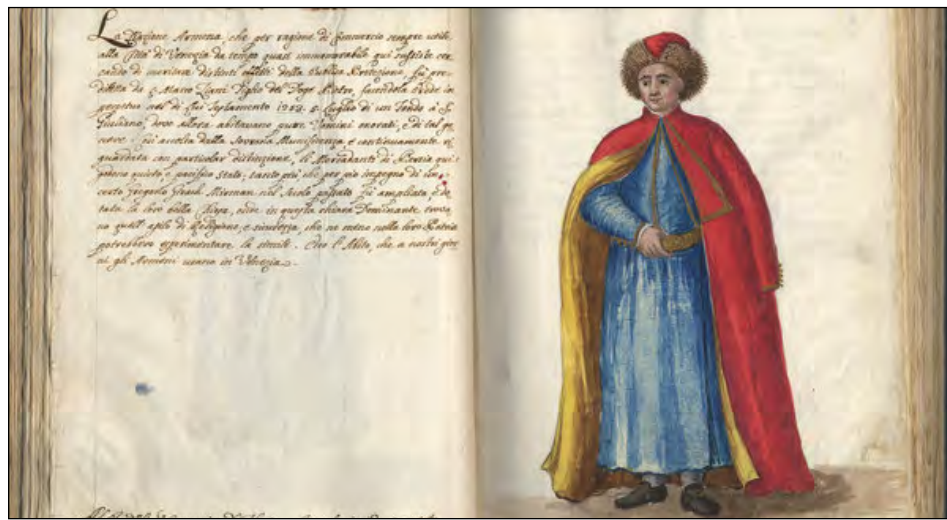 La Nazione Armena, che per ragione di Comercio sempre utile
alla Città di Venezia da tempo quasi immemorabile qui sussiste cer
cando di meritare distinti effetti della Publica Protezione, fù pre
diletta da Marco Ziani Figlio del Doge Pietro, facendola erede in
perpetuo nel di Lui Testamento 1253. Luglio di un fondo à S.
Giuliano, dove allora abitavano quegl' Uomini onorati, e di tal ge
nere. Fù accolta dalla Sovrana Munificenza e continuamente ri
guardata con particolar distinzione, li Mercadanti di Persia qui
godono quieto, e pacifico stato; tanto più che per pio impegno di un
certo Gregorio Mirman nel Secolo passato fù ampliata, e do
tata la loro bella Chiesa, onde in questa chiara Dominante trova
no quell' asilo di Religione, e sicurezza, che ne meno nella loro Patria
potrebbero esperimentare la simile. Ecco l' Abito, che a nostri gior
ni gli Armeni usano in Venezia.